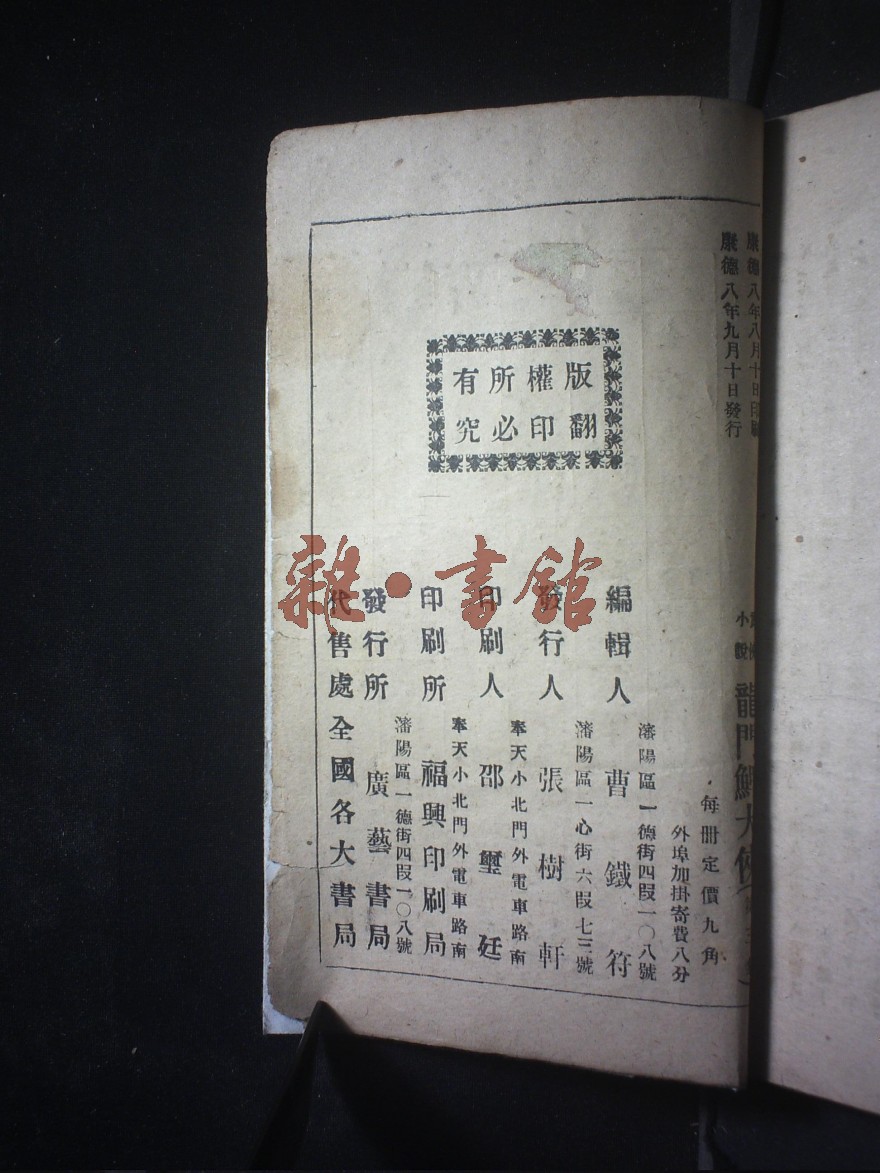 康德八年八月十日印刷
康德八年九月十日發行
版權所有
翻印必究
小說
龍門鯉大俠
每冊定價九角
外埠加掛寄費八分
瀋陽區一德街四段一〇八號
編輯人 曹鐵符
瀋陽區一心街六段七三號
發行人 張樹軒
奉天小北門外電車路南
印刷人 邵璽廷
奉天小北門外電車路南
印刷所 福興印刷局
瀋陽區一德街四段一〇八號
發行所 廣藝書局
代售處 全國各大書局
雜·書館